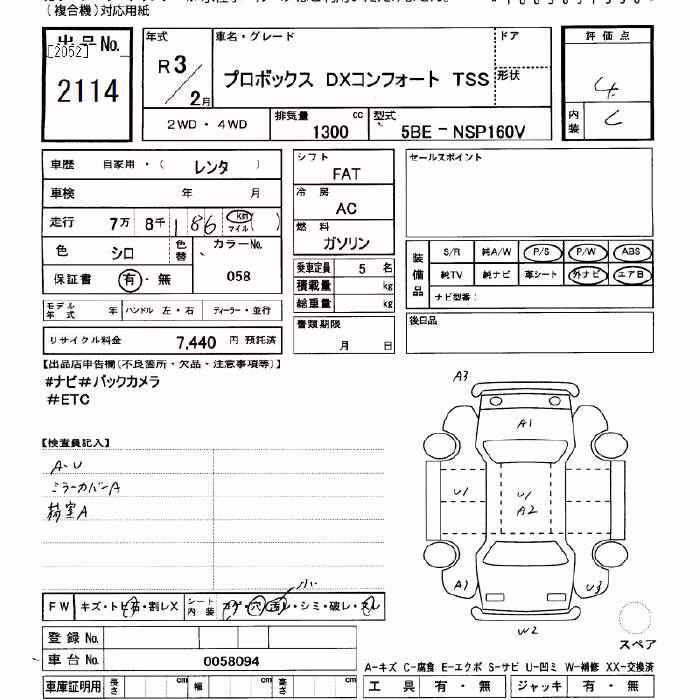 (複合機)対応用紙
出品No.
[2052]
2114
年式
R3/2月
車名・グレード
プロボックス DXコンフォート TSS
ドア
形状
評価点
4
内装
C
2WD・4WD
排気量
1300 cc
型式
5BE-NSP160V
車歴 自家用・( レンタ )
車検 年 月
走行 7万 8千 186 km マイル( )
色 シロ
色替
カラーNo.
058
保証書 有・無
モデル年式 年
ハンドル 左・右
ディーラー・並行
リサイクル料金 7,440 円 預託済
シフト
FAT
冷房
AC
燃料
ガソリン
乗車定員 5 名
積載量 kg
総重量 kg
書類期限
月 日
セールスポイント
装備品
S/R 純A/W P/S P/W ABS
純TV 純ナビ 革シート 外ナビ エアB
ナビ型番:
後日品
【出品店申告欄(不良箇所・欠品・注意事項等)】
#ナビ#バックカメラ
#ETC
【検査員記入】
A・U
ミラーカバーA
荷室A
A3
A1
U1
U1
A2
A1
U3
W2
スペア
FW キズ・トビ石・割レX
シート内装 コゲ・穴・汚レ・シミ・破レ・スレ
小
登録No.
車台No. 0058094
車庫証明用 長さ cm 幅 cm 高さ cm
A-キズ C-腐食 E-エクボ S-サビ U-凹ミ W-補修 XX-交換済
工具 有・無 ジャッキ 有・無